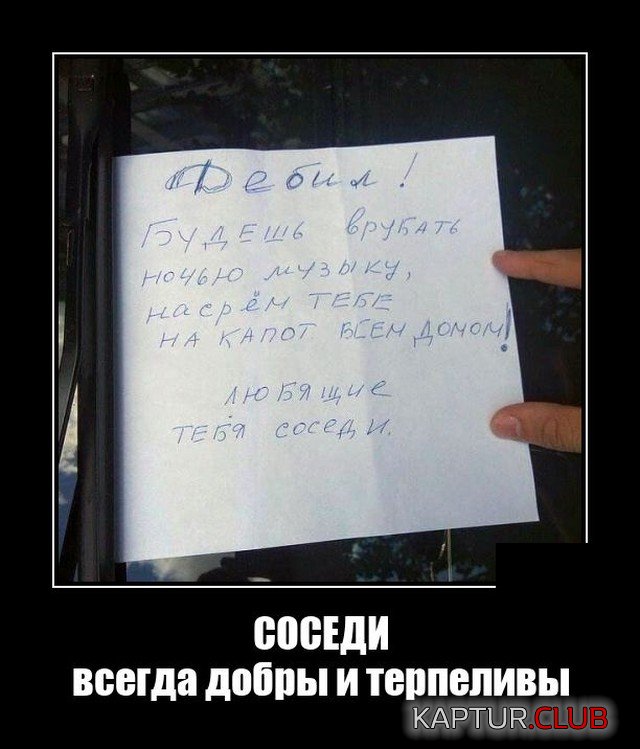 Дебил!
БУДЕШЬ врубАТЬ
НОЧЬЮ МУЗЫКУ,
насрём ТЕБЕ
НА КАПОТ ВСЕМ ДОМОМ!
ЛЮБЯЩИЕ
ТЕБЯ соседи.
СОСЕДИ
всегда добры и терпеливы
KAPTUR.CLUB